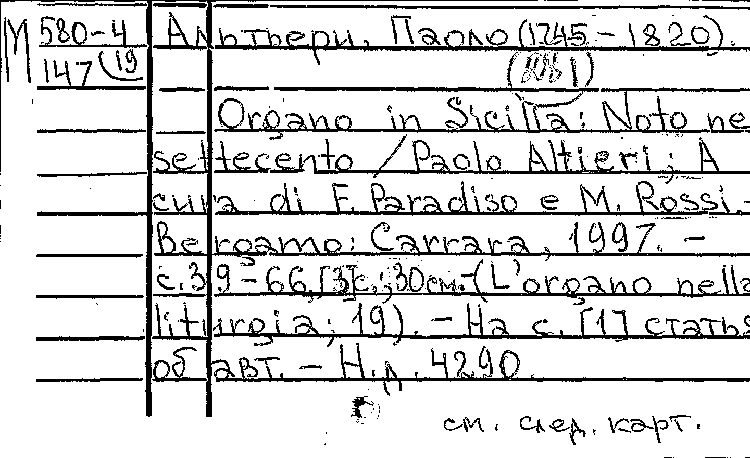 М 580-4 Альтьери, Паоло (1745 – 1820).
147 (19
Organo in Sicilia: Noto ne
settecento / Paolo Altieri; A
cura di F. Paradiso e M. Rossi.-
Bergamo: Carrara, 1997. –
с.39-66,[3]с.; 30см.-(L'organo nella
liturgia; 19). – На с. [1] статья
об авт. – Н.д. 4290.
см. след. карт.